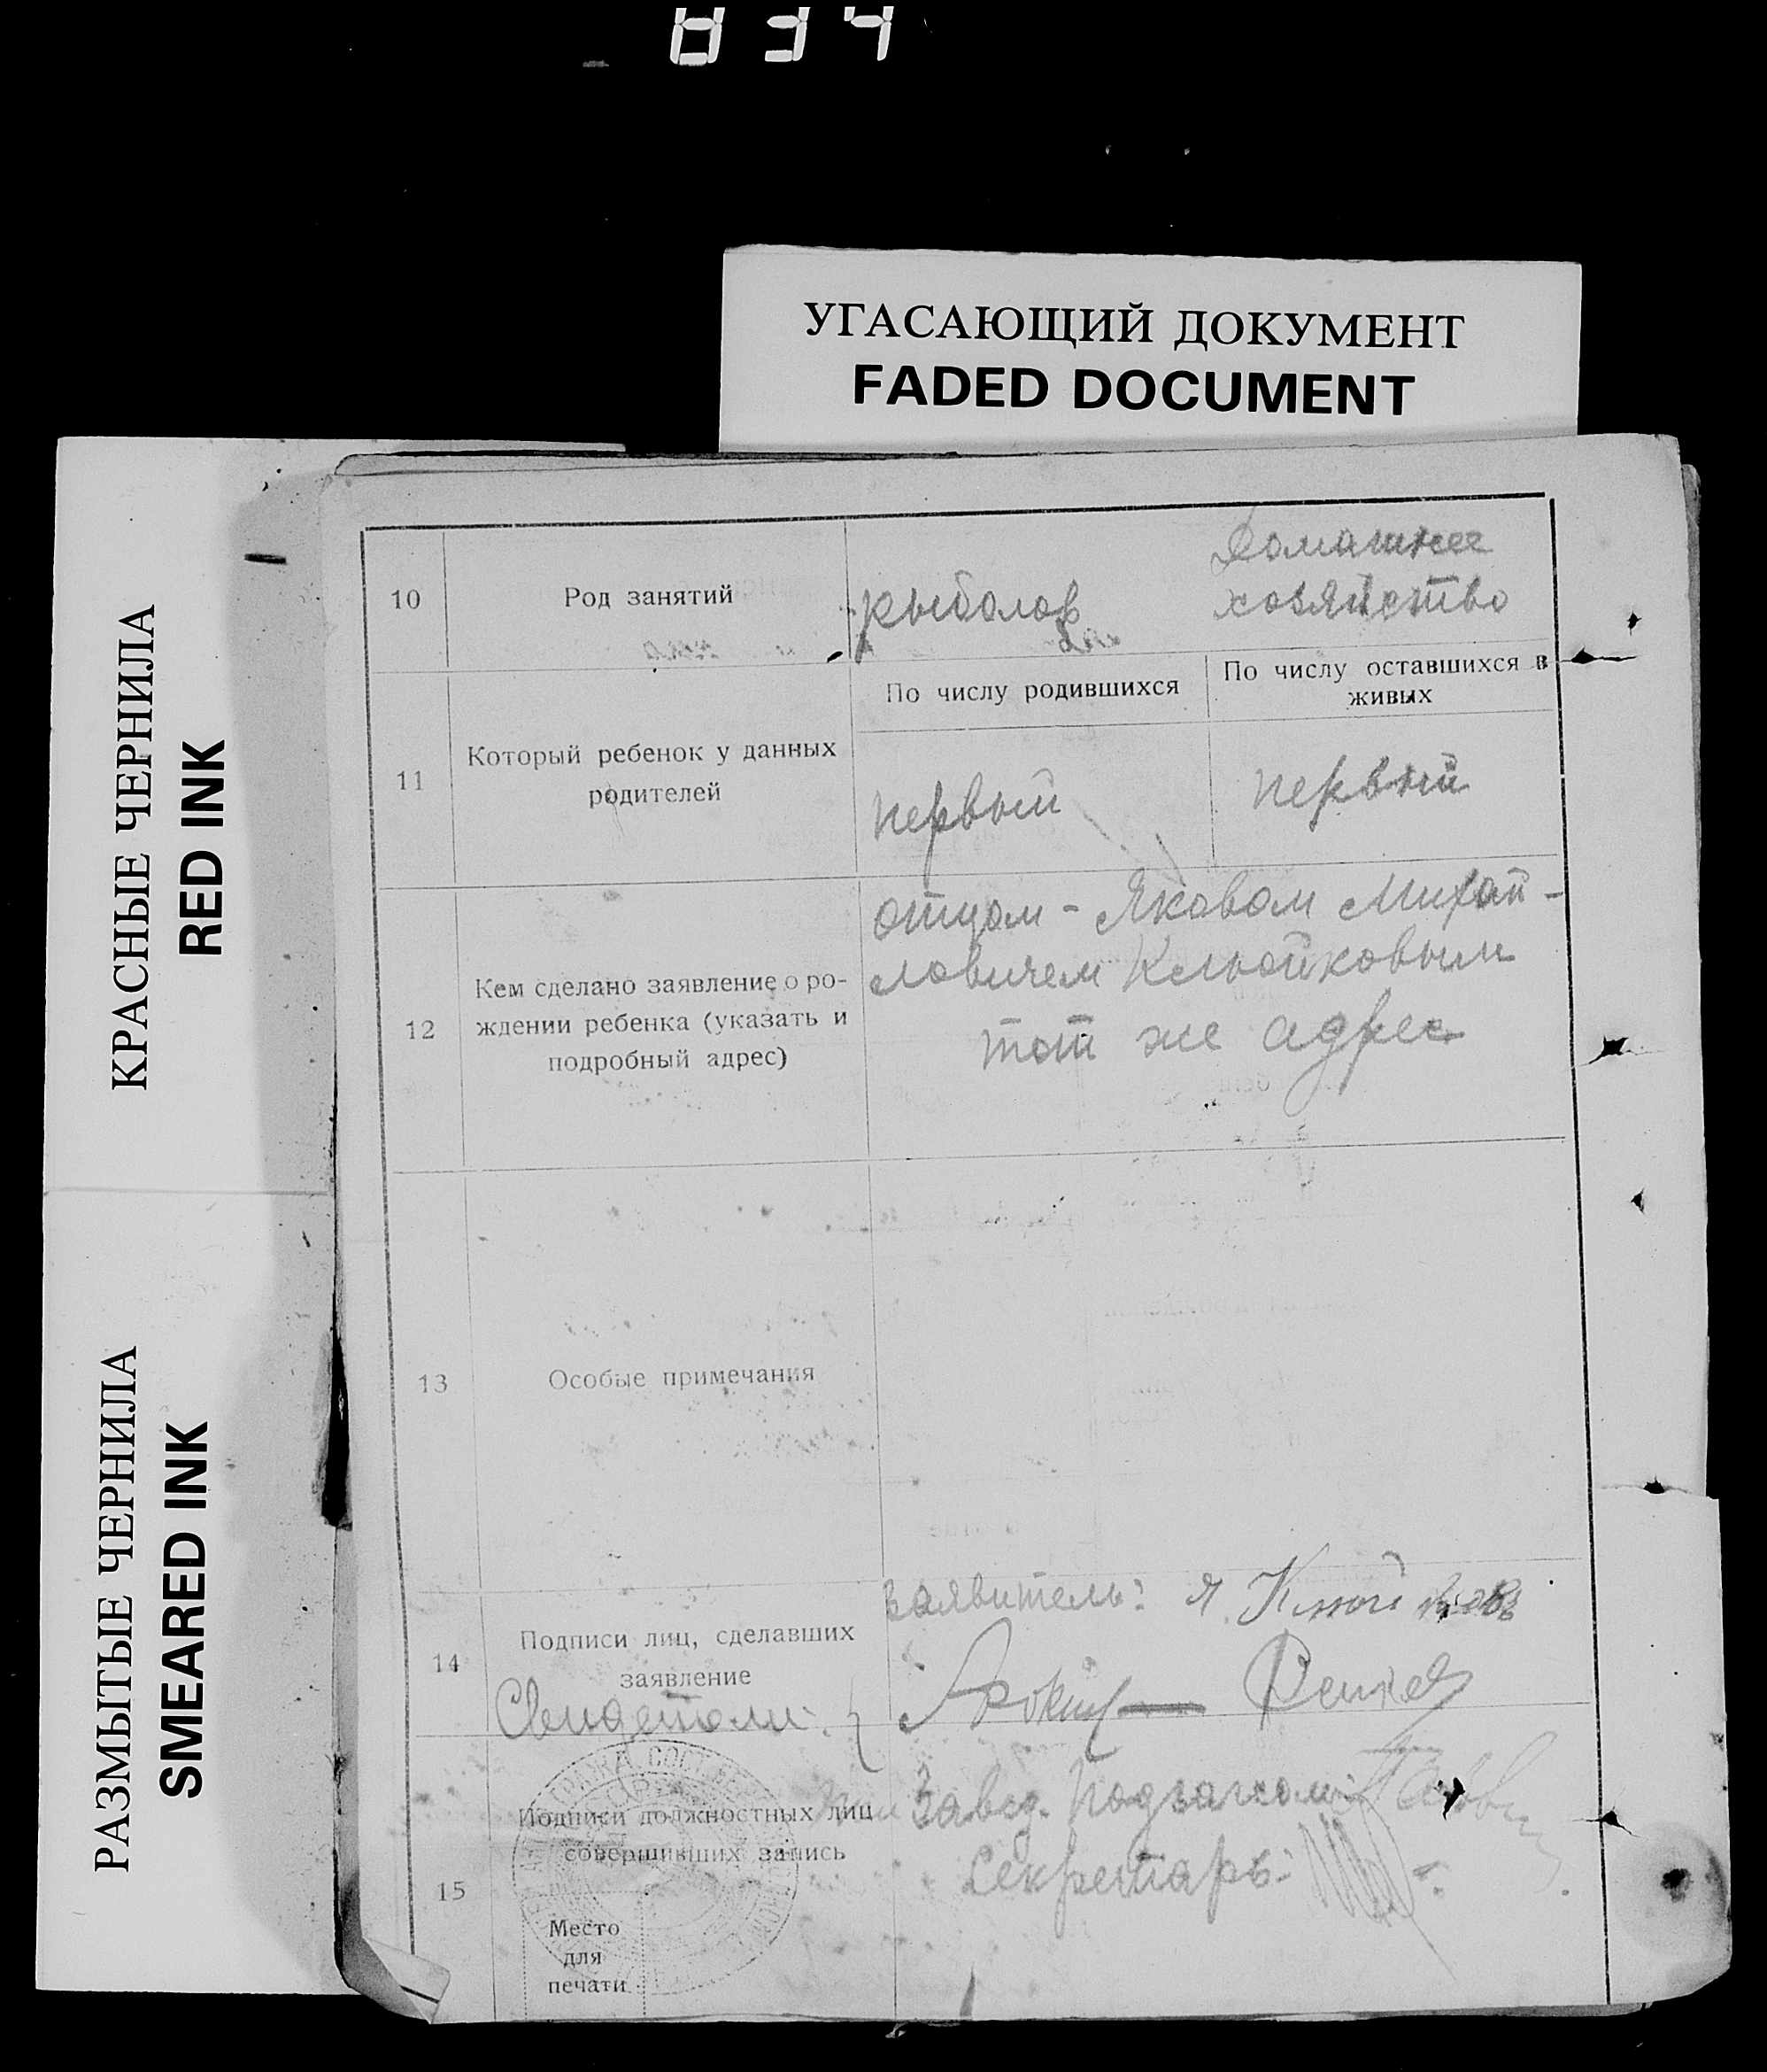 834
УГАСАЮЩИЙ ДОКУМЕНТ
FADED DOCUMENT
КРАСНЫЕ ЧЕРНИЛА
RED INK
РАЗМЫТЫЕ ЧЕРНИЛА
SMEARED INK
10
Род занятий
рыболов
Домашнее
хозяйство
11
Который ребенок у данных
родителей
По числу родившихся
По числу оставшихся в
живых
первый
первый
12
Кем сделано заявление о ро-
ждении ребенка (указать и
подробный адрес)
отцом - Яковом Михай-
ловичем
тот же адрес
13
Особые примечания
14
Подписи лиц, сделавших
заявление
Свидетели:
заявитель: Я.
15
Подписи должностных лиц
совершивших запись
Место
для
печати
Завед. Подзагсом:
Секретарь: